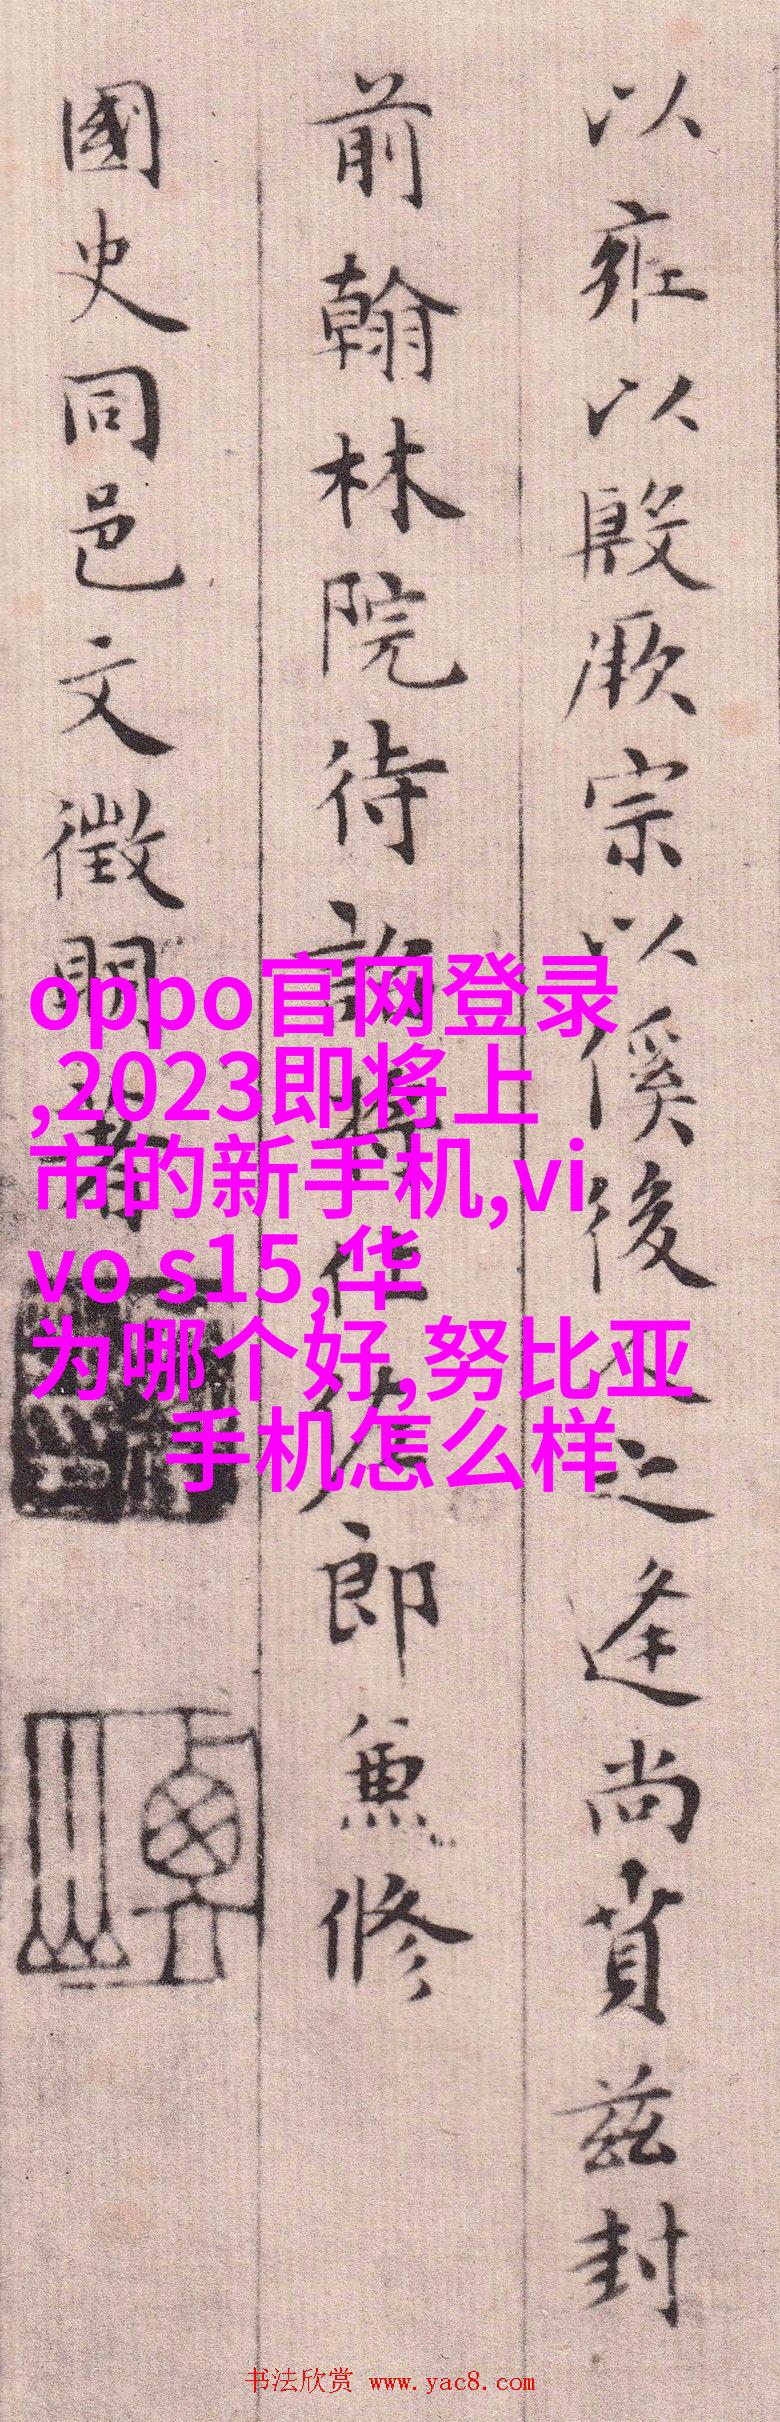 以雍以殷厥宗以徯後人之逢尚賁茲封
前翰林院待詔將仕佐郎兼修
國史同邑文徵明書
oppo官网登录
,2023即将上
市的新手机,vi
vo s15,华
为哪个好,努比亚
手机怎么样
书法欣赏 www.yac8.com